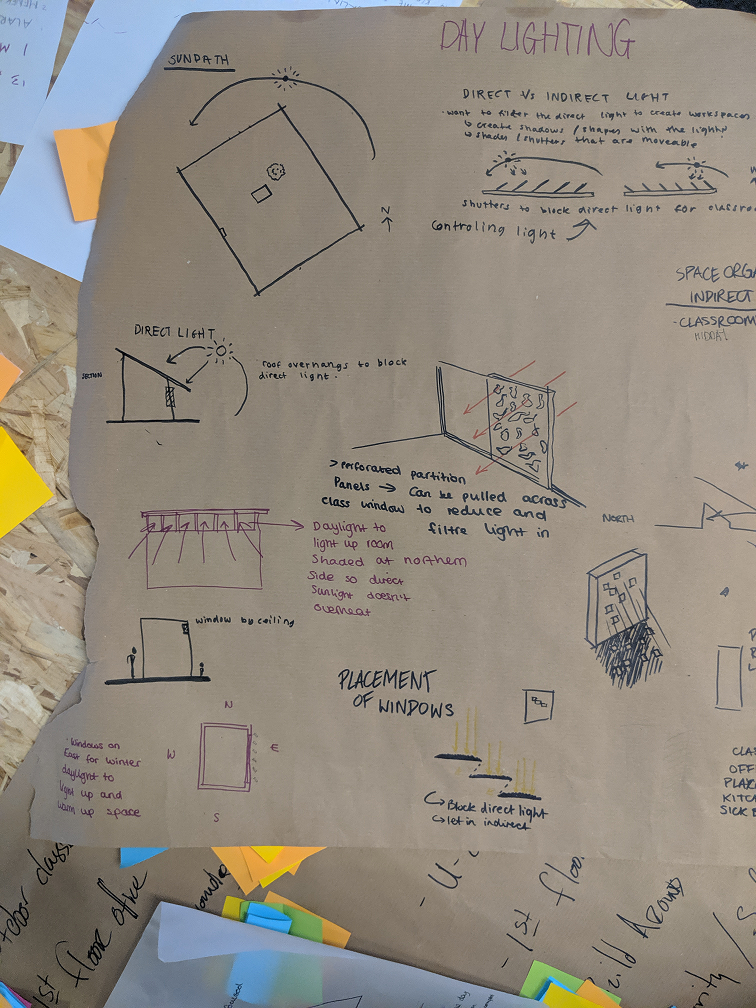 DAY LIGHTING
SUNPATH
N
DIRECT VS INDIRECT LIGHT
- want to filter the direct light to create workspaces
↳ create shadows / shapes with the light?
↳ shades / shutters that are moveable
shutters to block direct light for classroo
Controling light
SPACE ORGA
INDIRECT
- CLASSROOM
DIRECT LIGHT
SECTION
roof overhangs to block
direct light.
> perforated partition
Panels → Can be pulled across
class window to reduce and
filtre light in
NORTH
Daylight to
light up room
Shaded at northern
Side so direct
Sunlight doesn't
overheat
window by ceiling
PLACEMENT
OF WINDOWS
N
W
E
S
· Windows on
East for winter
daylight to
light up and
warm up space
↳ Block direct light
↳ let in indirect
CLA
OFF
PLAY
KITC
SICK B
1st floor office
- U-
- 1st floo
ild Around